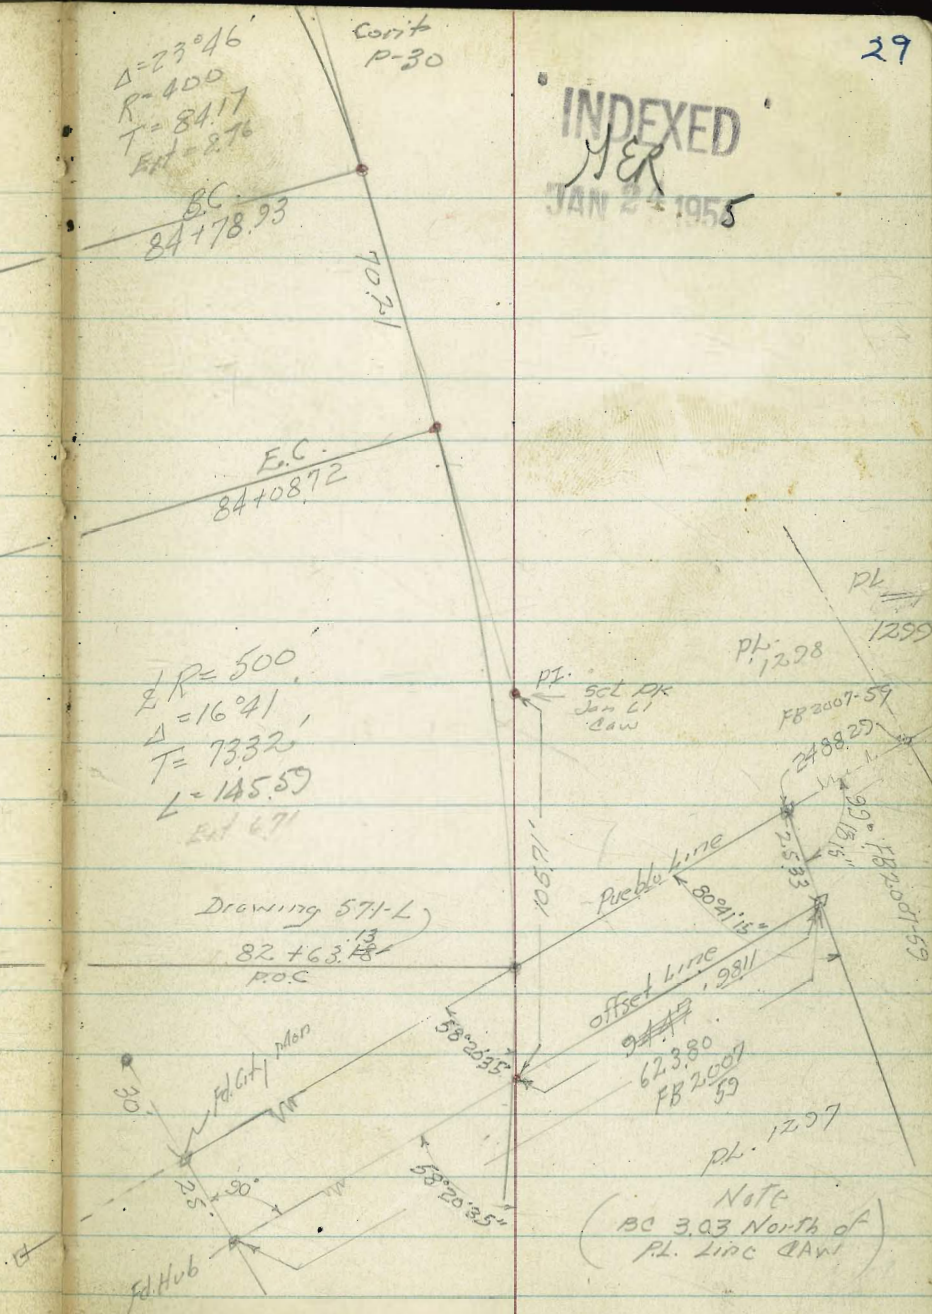 29
Cont
P-30
Δ=23°46
R=400
T=84.17
Ext=8.76
INDEXED
JAN 24 1955
B.C.
84+78.93
70.21
E.C.
84+08.72
PL
1299
PL.
1298
R=500
Δ=16°41'
T=73.32
L=145.59
Ext 6.71
P.I.
Set PK
Jan 61
CAW
FB 2007-59
2488.29
99° 18'15"
FB 2007-59
25.33
Pueblo Line
80°41'15"
Drawing 571-L
82+63.18
.13
P.O.C
Offset Line
9811
9447
623.80
FB 2007
59
58°20'35"
Fd. City Mon
30'
25'
90°
58°20'35"
Fd. Hub
P.L. 1297
Note
BC 3.03 North of
P.L. Line CAW